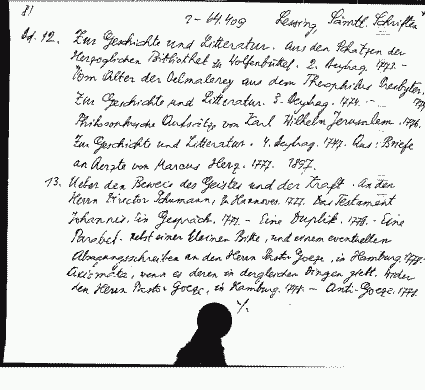 8)
2-64.409 Lessing, Sämtl. Schriften
Bd. 12. Zur Geschichte und Litteratur. Aus den Schätzen der
Herzoglichen Bibliothek zu Wolfenbüttel. 2. Beytrag. 1773. -
Vom Alter der Oelmalerey aus dem Theophilus Presbyter.
Zur Geschichte und Litteratur. 3. Beytrag. 1774. -
Philosophische Aufsätze von Karl Wilhelm Jerusalem. 1776.
Zur Geschichte und Litteratur. 4. Beytrag. 1777. Aus: Briefe
an Aerzte von Marcus Herz. 1777. 1897.
13. Ueber den Beweis des Geistes und der Kraft. An den
Herrn Director Schumann, zu Hannover. 1777. Das Testament
Johannis. Ein Gespräch. 1777. - Eine Duplik. 1778. - Eine
Parabel. Nebst einer kleinen Bitte, und einem eventualen
Absagungsschreiben an den Herrn Pastor Goeze, in Hamburg. 1778. -
Axiomata, wenn es deren in dergleichen Dingen giebt. Wider
den Herrn Pastor Goeze, in Hamburg. 1778. - Anti-Goeze. 1778.